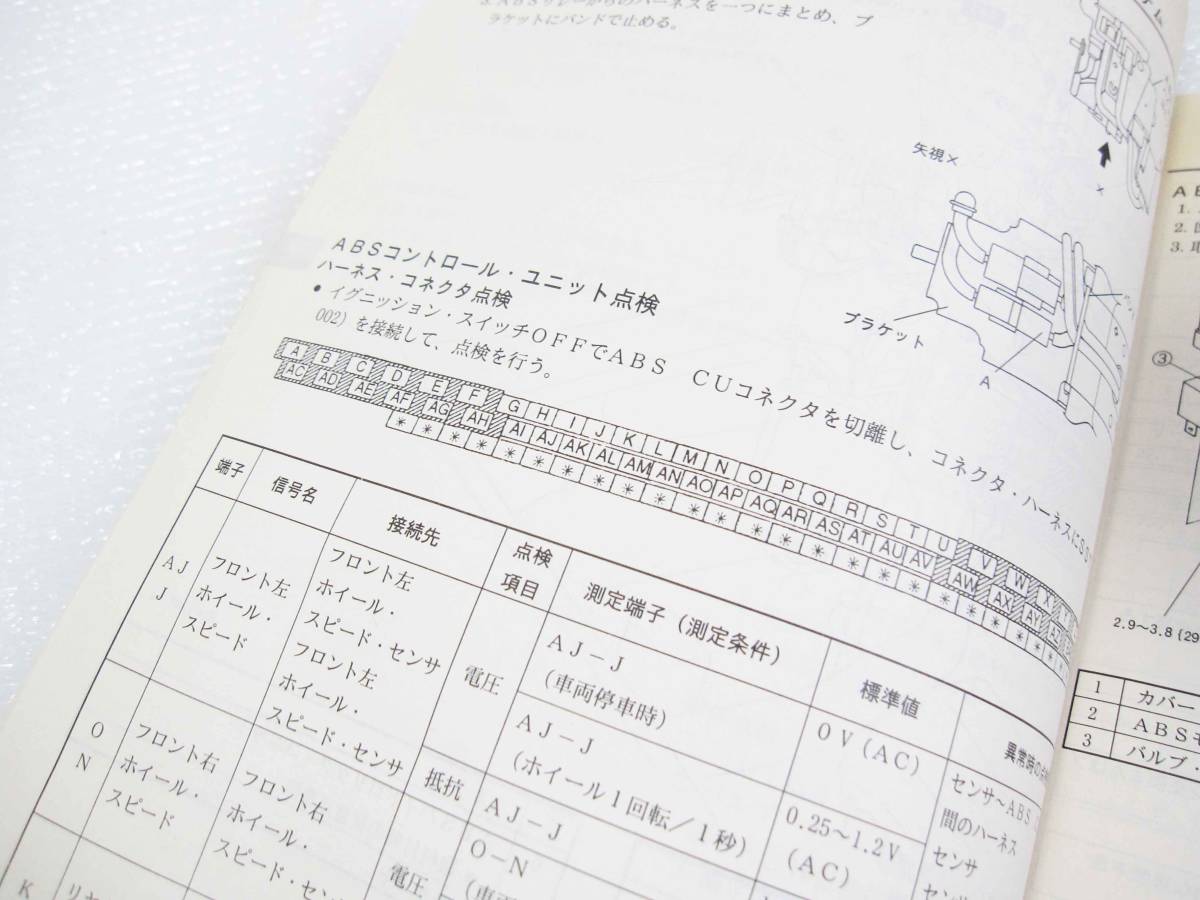 3. ABSリレーからのハーネスを一つにまとめ、ブ
ラケットにバンドで止める。
矢視×
×
ブラケット
A
ABSコントロール・ユニット点検
ハーネス・コネクタ点検
● イグニッション・スイッチOFFでABS CUコネクタを切離し、コネクタ・ハーネスにSS
002) を接続して、点検を行う。
A B C D E F G H I J K L M N O P Q R S T U V W X
AC AD AE AF AG AH AI AJ AK AL AM AN AO AP AQ AR AS AT AU AV AW AX AY AZ
* * * * * * * * * * * * * * * * * * * * * *
端子 信号名 接続先 点検項目 測定端子 (測定条件) 標準値
AJ
J
フロント左
ホイール・
スピード
フロント左
ホイール・
スピード・センサ
フロント左
ホイール・
スピード・センサ
電圧
AJ－J
(車両停車時)
0V(AC)
AJ－J
(ホイール1回転／1秒)
0.25～1.2V
(AC)
センサ～ABS
間のハーネス
センサ
抵抗
AJ－J
O
N
フロント右
ホイール・
スピード
フロント右
ホイール・
スピード・セン
電圧
O－N
K
1.
2.
3.
③
2.9～3.8 (29
1 カバー
2 ABSモ
3 バルブ・